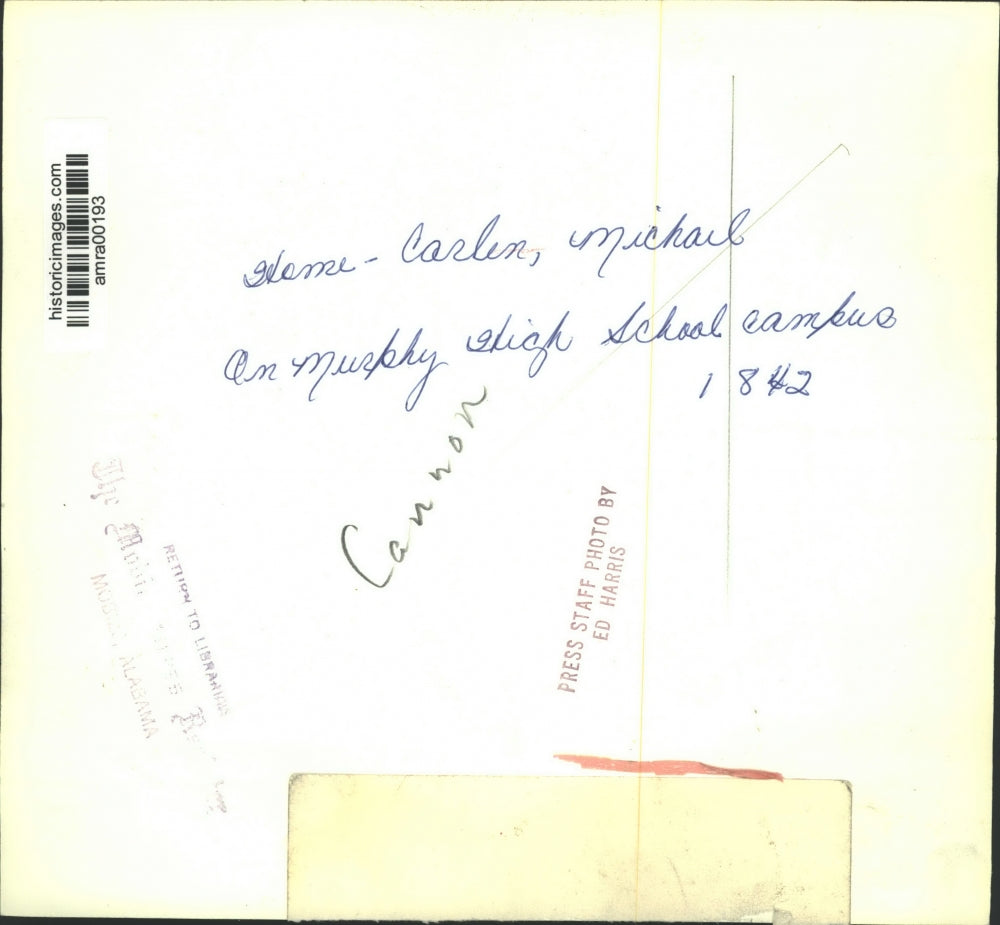 historicimages.com
amra00193
Home - Carlen, Michael
On Murphy High School campus
1842
Cannon
PRESS STAFF PHOTO BY
ED HARRIS
RETURN TO LIBRARIAN
The
MOBILE, ALABAMA